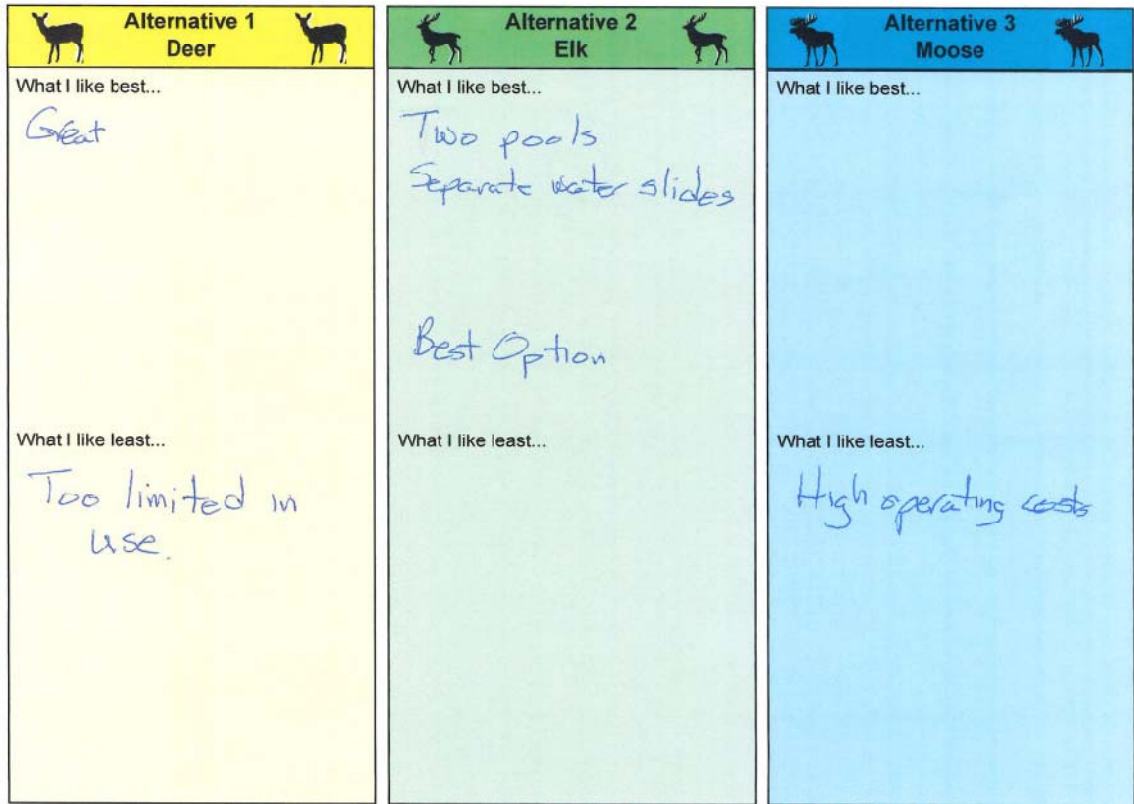 Alternative 1
Deer
What I like best...
Great
What I like least...
Too limited in
use.
Alternative 2
Elk
What I like best...
Two pools
Separate water slides
Best Option
What I like least...
Alternative 3
Moose
What I like best...
What I like least...
High operating costs